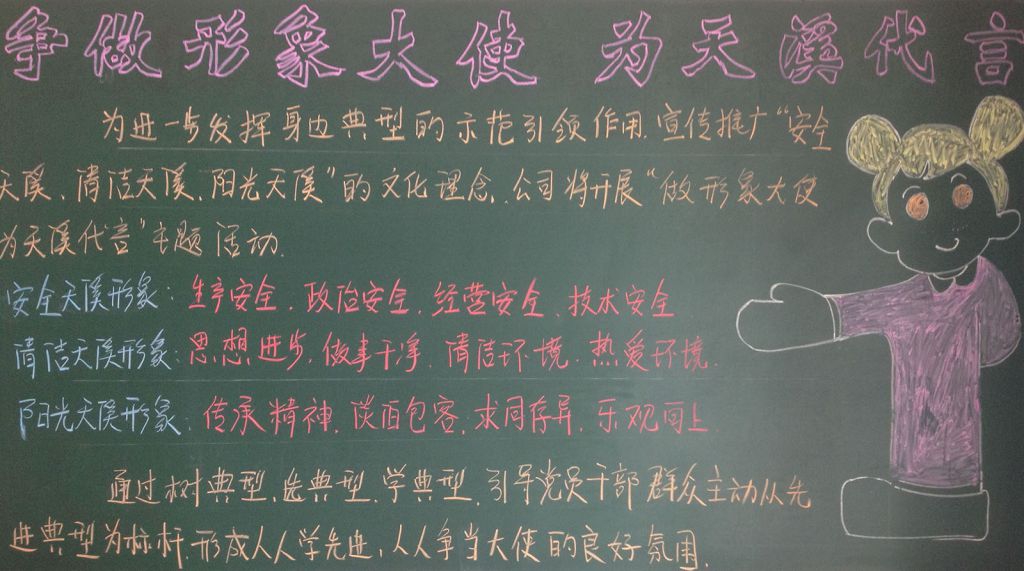 争做形象大使 为天溪代言
为进一步发挥身边典型的示范引领作用.宣传推广“安全
天溪、清洁天溪、阳光天溪”的文化理念.公司将开展“做形象大使
为天溪代言”主题活动.
安全天溪形象:生产安全.政治安全.经营安全.技术安全
清洁天溪形象:思想进步.做事干净.清洁环境.热爱环境.
阳光天溪形象:传承精神.谈百包客.求同存异.乐观向上.
通过树典型.选典型.学典型.引导党员干部群众主动从先
进典型为标杆.形成人人学先进.人人争当大使的良好氛围.